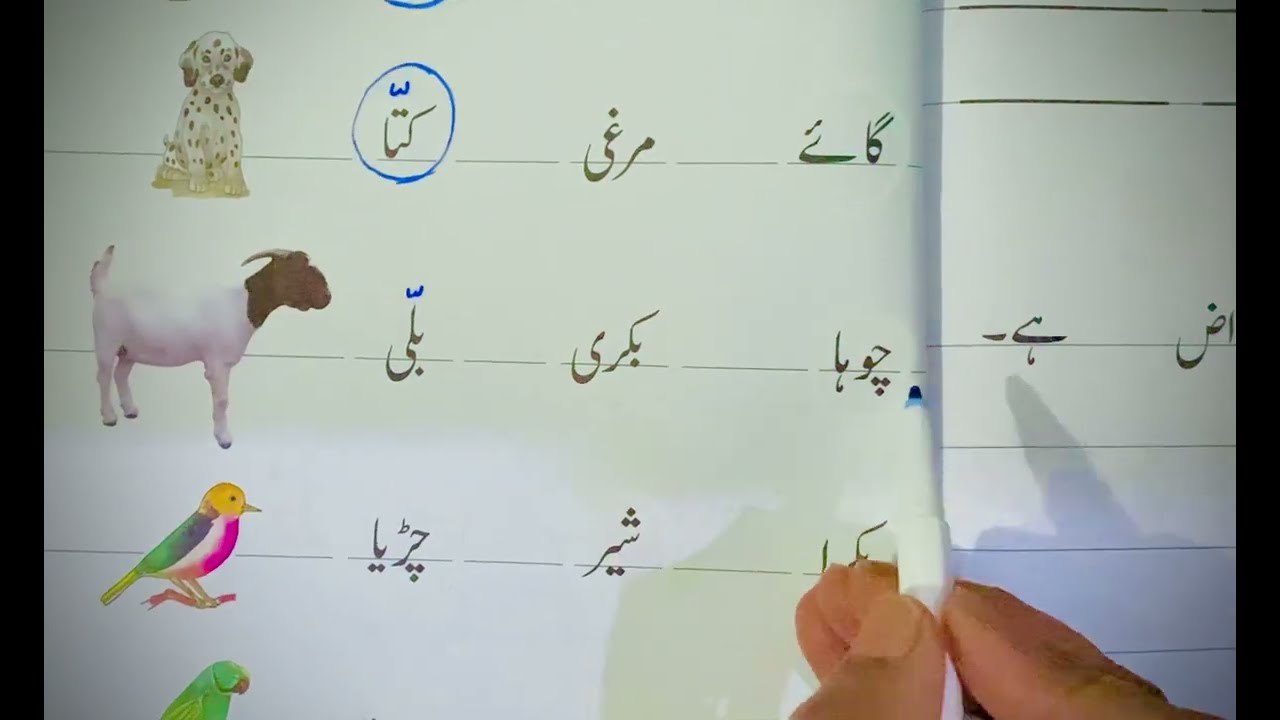 گائے مرغی کتّا
چوہا بکری بلّی
ہے۔
شیر چڑیا